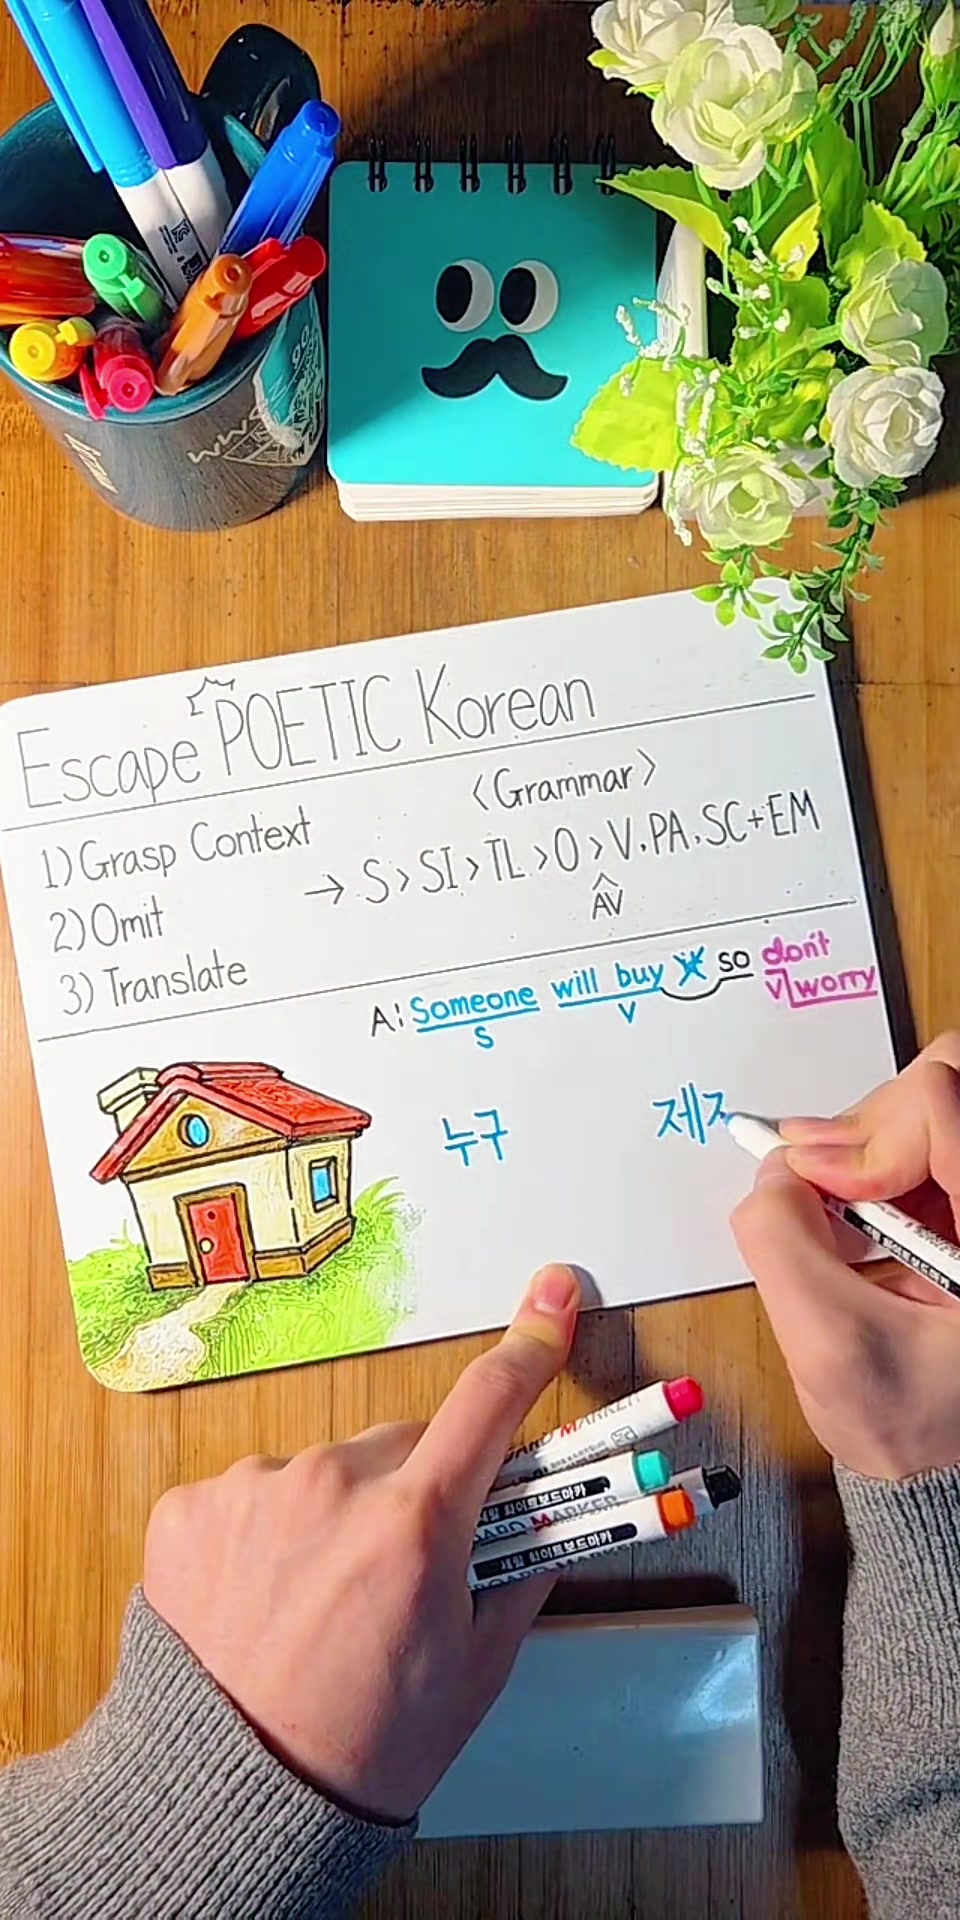 Escape POETIC Korean
<Grammar>
1) Grasp Context
→ S > SI > TL > O > V, PA, SC + EM
AV
2) Omit
3) Translate
A: Someone will buy it so don't
worry
S V V
누구 제
BOARD MARKER
세일 화이트보드마카
BOARD MARKER
세일 화이트보드마카